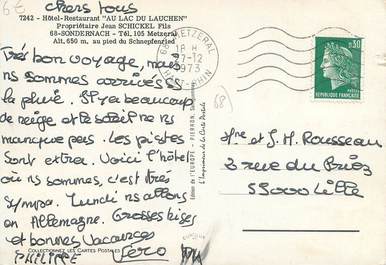 6€
chers tous
7242 - Hôtel-Restaurant "AU LAC DU LAUCHEN"
Propriétaire Jean SCHICKEL Fils
68-SONDERNACH - Tél. 105 Metzeral
Alt. 650 m. au pied du Schnepfenried
Très bon voyage, mais
ns sommes arrivés ss
la pluie. Il y a beaucoup
de neige et le soleil ne ns
manque pas. Les pistes
sont extra. Voici l'hôtel
où ns sommes, c'est très
sympa. Lundi ns allons
en Allemagne. Grosses bises
et bonnes vacances
PHILIPPE Véro
COLLECTIONNEZ LES CARTES POSTALES
Edition de l'EUROPE - PIERRON,
L'Imprimeur de la Carte Postale
68 METZERAL
18 H
27-12
1973
HT-RHIN
(68)
0,30
REPUBLIQUE FRANÇAISE
POSTES
Mr et J.H. Rousseau
rue du
59000 Lille